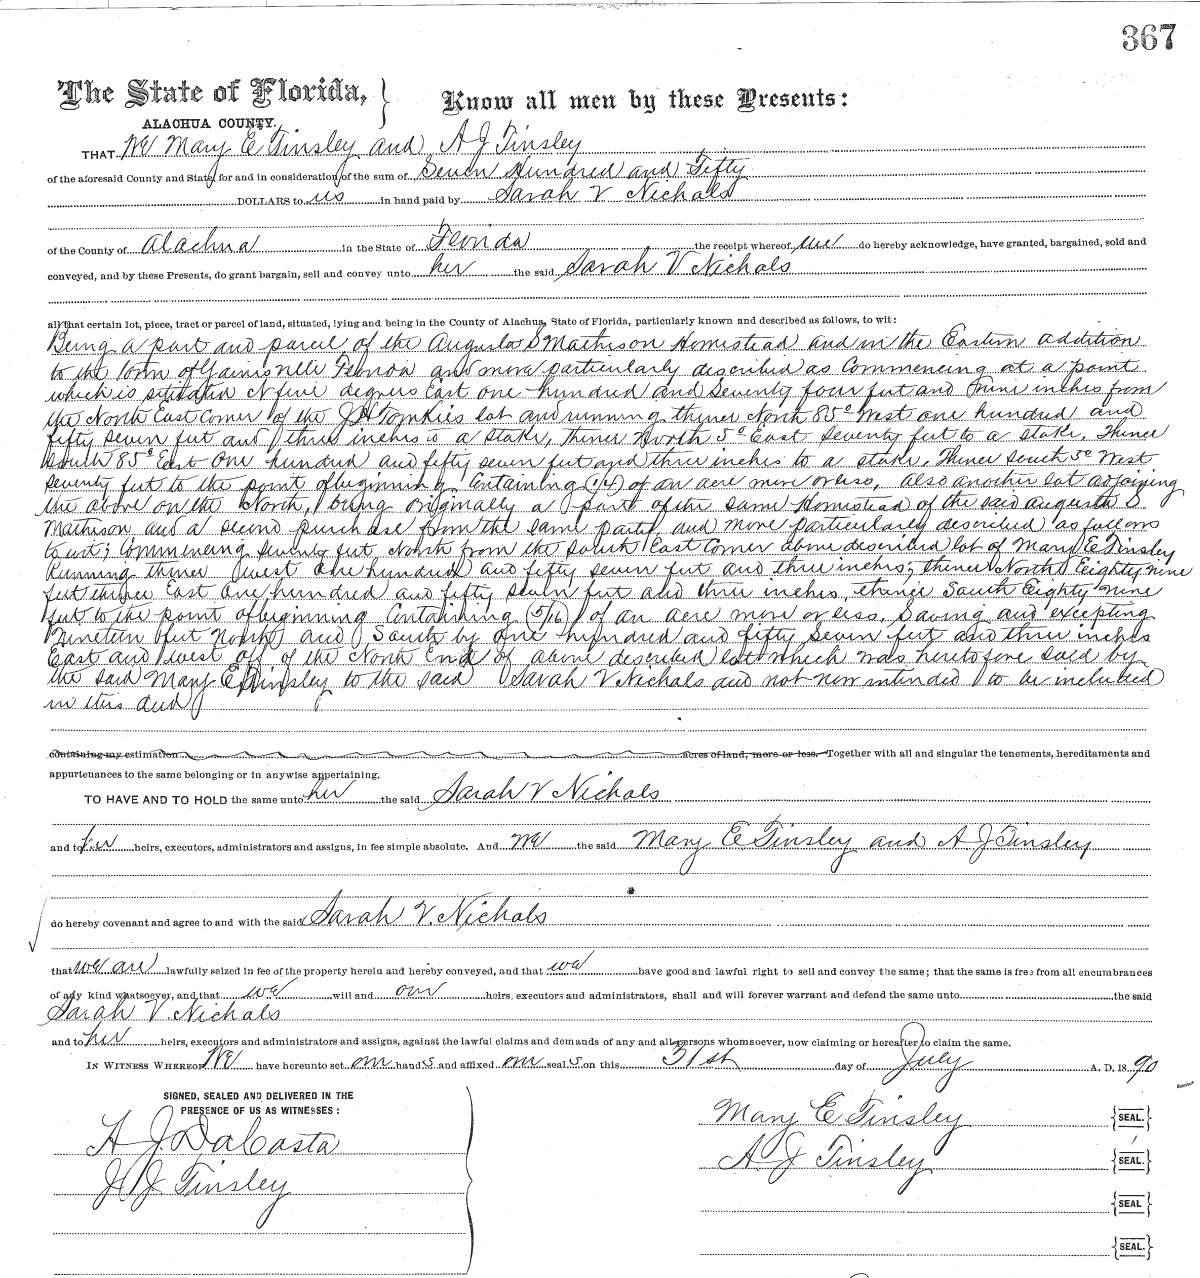 367
The State of Florida, } Know all men by these Presents:
ALACHUA COUNTY.
THAT We Mary E Tinsley and A J Tinsley
of the aforesaid County and State, for and in consideration of the sum of Seven Hundred and Fifty
DOLLARS to us in hand paid by Sarah V Nichols
of the County of Alachua in the State of Florida the receipt whereof we do hereby acknowledge, have granted, bargained, sold and
conveyed, and by these Presents, do grant bargain, sell and convey unto her the said Sarah V Nichols
all that certain lot, piece, tract or parcel of land, situated, lying and being in the County of Alachua, State of Florida, particularly known and described as follows, to wit:
Being a part and parcel of the Augusta S Mathison Homestead and in the Eastern addition
to the town of Gainesville Florida and more particularly described as Commencing at a point
which is situated N five degrees East one hundred and Seventy four feet and nine inches from
the North East Corner of the J H Tomkies lot and running thence North 85° West one hundred and
fifty seven feet and three inches to a stake, thence North 5° East seventy feet to a stake. Thence
South 85° East one hundred and fifty seven feet and three inches to a stake. Thence South 5° West
seventy feet to the point of beginning. Containing (1/4) of an acre more or less, also another lot adjoining
the above on the North, being originally a part of the same Homestead of the said Augusta S
Mathison and a second purchase from the same party and more particularly described as follows
to wit; Commencing Seventy feet North from the South East Corner above described lot of Mary E Tinsley
Running thence West one hundred and fifty seven feet and three inches; thence North Eighty nine
feet thence East one hundred and fifty seven feet and three inches, thence South Eighty nine
feet to the point of beginning Containing (5/16) of an acre more or less, Saving and excepting
Nineteen feet North and South by one hundred and fifty seven feet and three inches
East and West off of the North End of above described lot which was heretofore sold by
the said Mary E Tinsley to the said Sarah V Nichols and not now intended to be included
in this deed
containing my estimation acres of land, more or less. Together with all and singular the tenements, hereditaments and
appurtenances to the same belonging or in anywise appertaining.
TO HAVE AND TO HOLD the same unto her the said Sarah V Nichols
and to her heirs, executors, administrators and assigns, in fee simple absolute. And We the said Mary E Tinsley and A J Tinsley
do hereby covenant and agree to and with the said Sarah V. Nichols
that we are lawfully seized in fee of the property herein and hereby conveyed, and that we have good and lawful right to sell and convey the same; that the same is free from all encumbrances
of any kind whatsoever, and that we will and our heirs, executors and administrators, shall and will forever warrant and defend the same unto the said
Sarah V. Nichols
and to her heirs, executors and administrators and assigns, against the lawful claims and demands of any and all persons whomsoever, now claiming or hereafter to claim the same.
IN WITNESS WHEREOF We have hereunto set our hands and affixed our seals on this 31st day of July A. D. 1890
SIGNED, SEALED AND DELIVERED IN THE
PRESENCE OF US AS WITNESSES:
A J DaCosta
J J Tinsley
Mary E Tinsley {SEAL.}
A J Tinsley {SEAL.}
{SEAL}
{SEAL.}